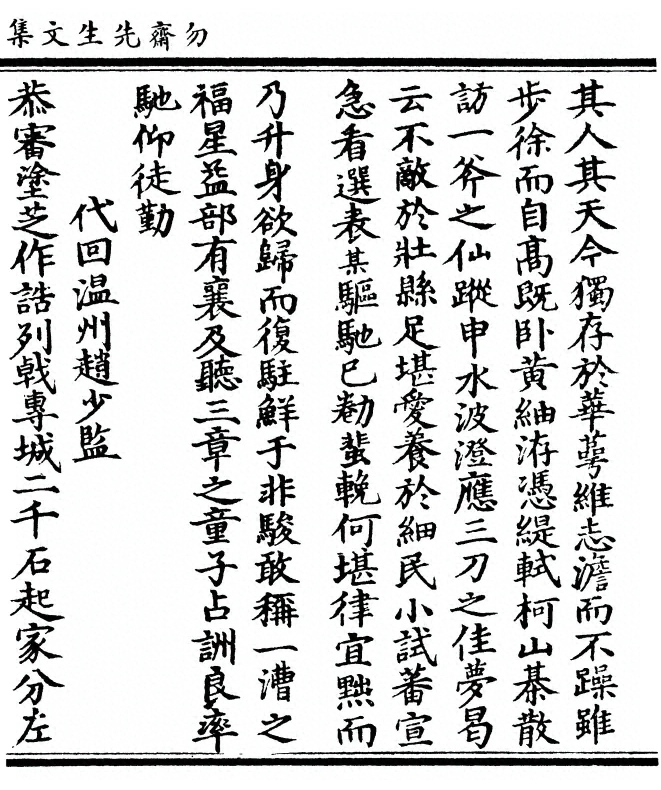 勿齋先生文集
其人其天今獨存於華萼維志澹而不躁雖
步徐而自高既卧黃紬洊憑緹軾柯山棊散
訪一斧之仙蹤申水波澄應三刀之佳夢曷
云不敵於壯縣足堪愛養於細民小試蕃宣
急看選表某驅馳已勌蚩輓何堪律宜黜而
乃升身欲歸而復駐鮮于非駿敢稱一漕之
福星益部有襄及聽三章之童子占詶良率
馳仰徒勤
代回温州趙少監
恭審塗芝作誥列戟專城二千石起家分左